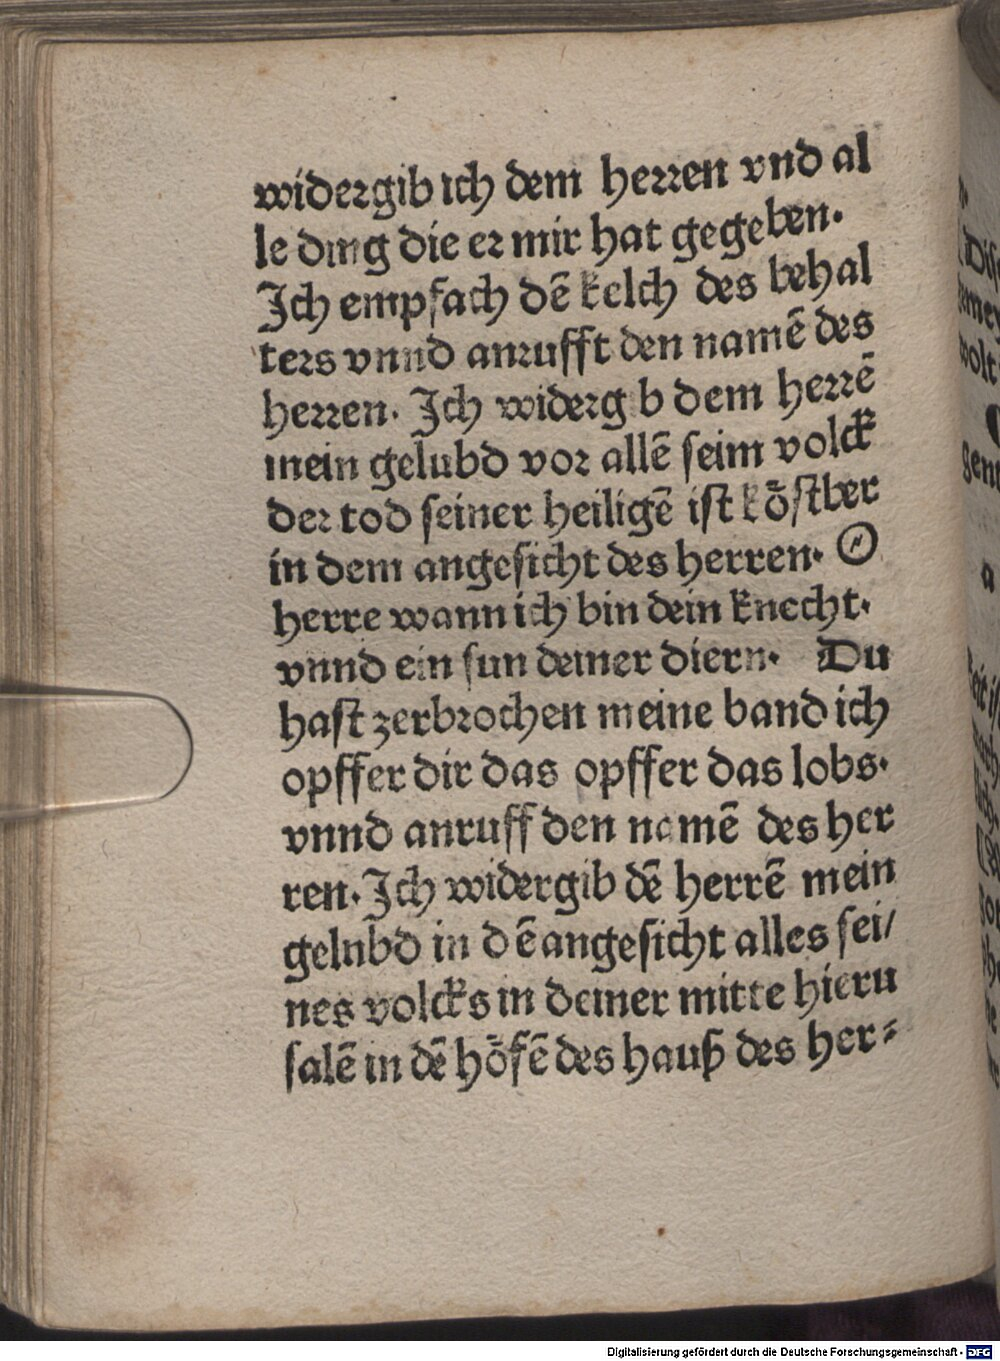 widergib ich dem herren vnd al
le ding die er mir hat gegeben.
Ich empfach dē kelch des behal
ters vnnd anrufft den namē des
herren. Ich widergib dem herrē
mein gelubd vor allē seim volck
der tod seiner heiligē ist kőstber
in dem angesicht des herren. O
herre wann ich bin dein knecht.
vnnd ein sun deiner diern. Du
hast zerbrochen meine band ich
opffer dir das opffer das lobs.
vnnd anruff den namē des her
ren. Ich widergib dē herrē mein
gelnbd in dē angesicht alles sei/
nes volcks in deiner mitte hieru
salē in dē hőfē des hauß des her⸗
Digitalisierung gefördert durch die Deutsche Forschungsgemeinschaft - DFG